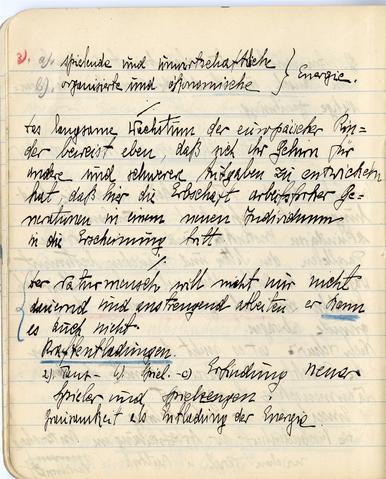 3). a). spielende und unwirtschaftliche
b). organisierte und ökonomische } Energie.
Das langsame Wachstum der europäischer Kin-
der beweist eben, daß sich ihr Gehirn für
andere und schwerere Aufgaben zu entwickeln
hat, daß hier die Erbschaft arbeitsfroher Ge-
nerationen in einem neuen Individuum
in die Erscheinung tritt
Der Naturmensch will nicht nur nicht
dauernd und anstrengend arbeiten er kann
es auch nicht.
Kraftentladungen.
a) Tanz - b) Spiel. - c) Erfindung neuer
Spieler und Spielzeugen.
Grausamkeit als Entladung der Energie.